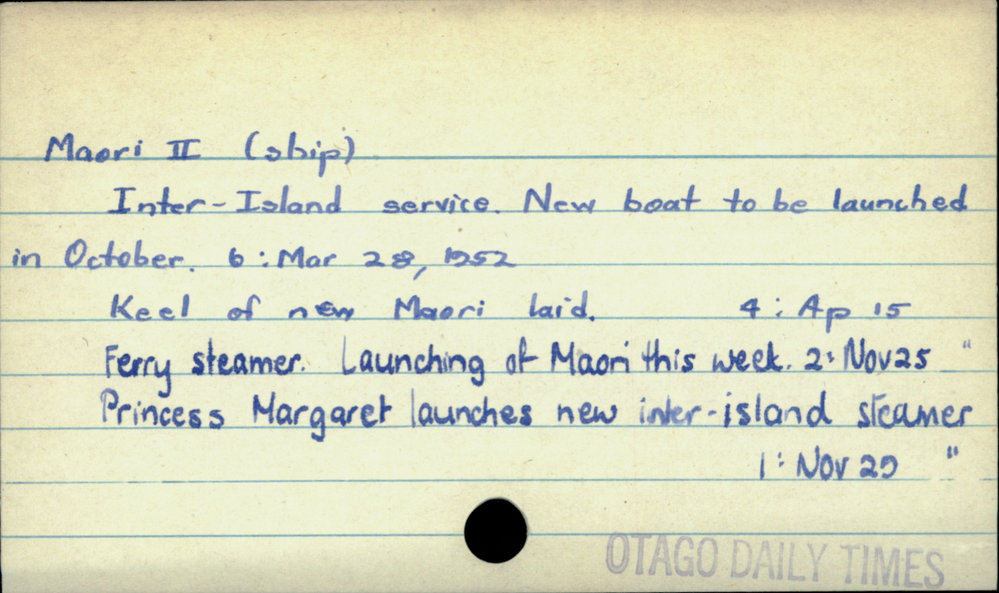 Maori II (ship)
Inter-Island service. New boat to be launched
in October. 6 : Mar 28, 1952
Keel of new Maori laid. 4 : Ap 15
Ferry steamer. Launching of Maori this week. 2 : Nov 25 "
Princess Margaret launches new inter-island steamer
1 : Nov 29 "
OTAGO DAILY TIMES